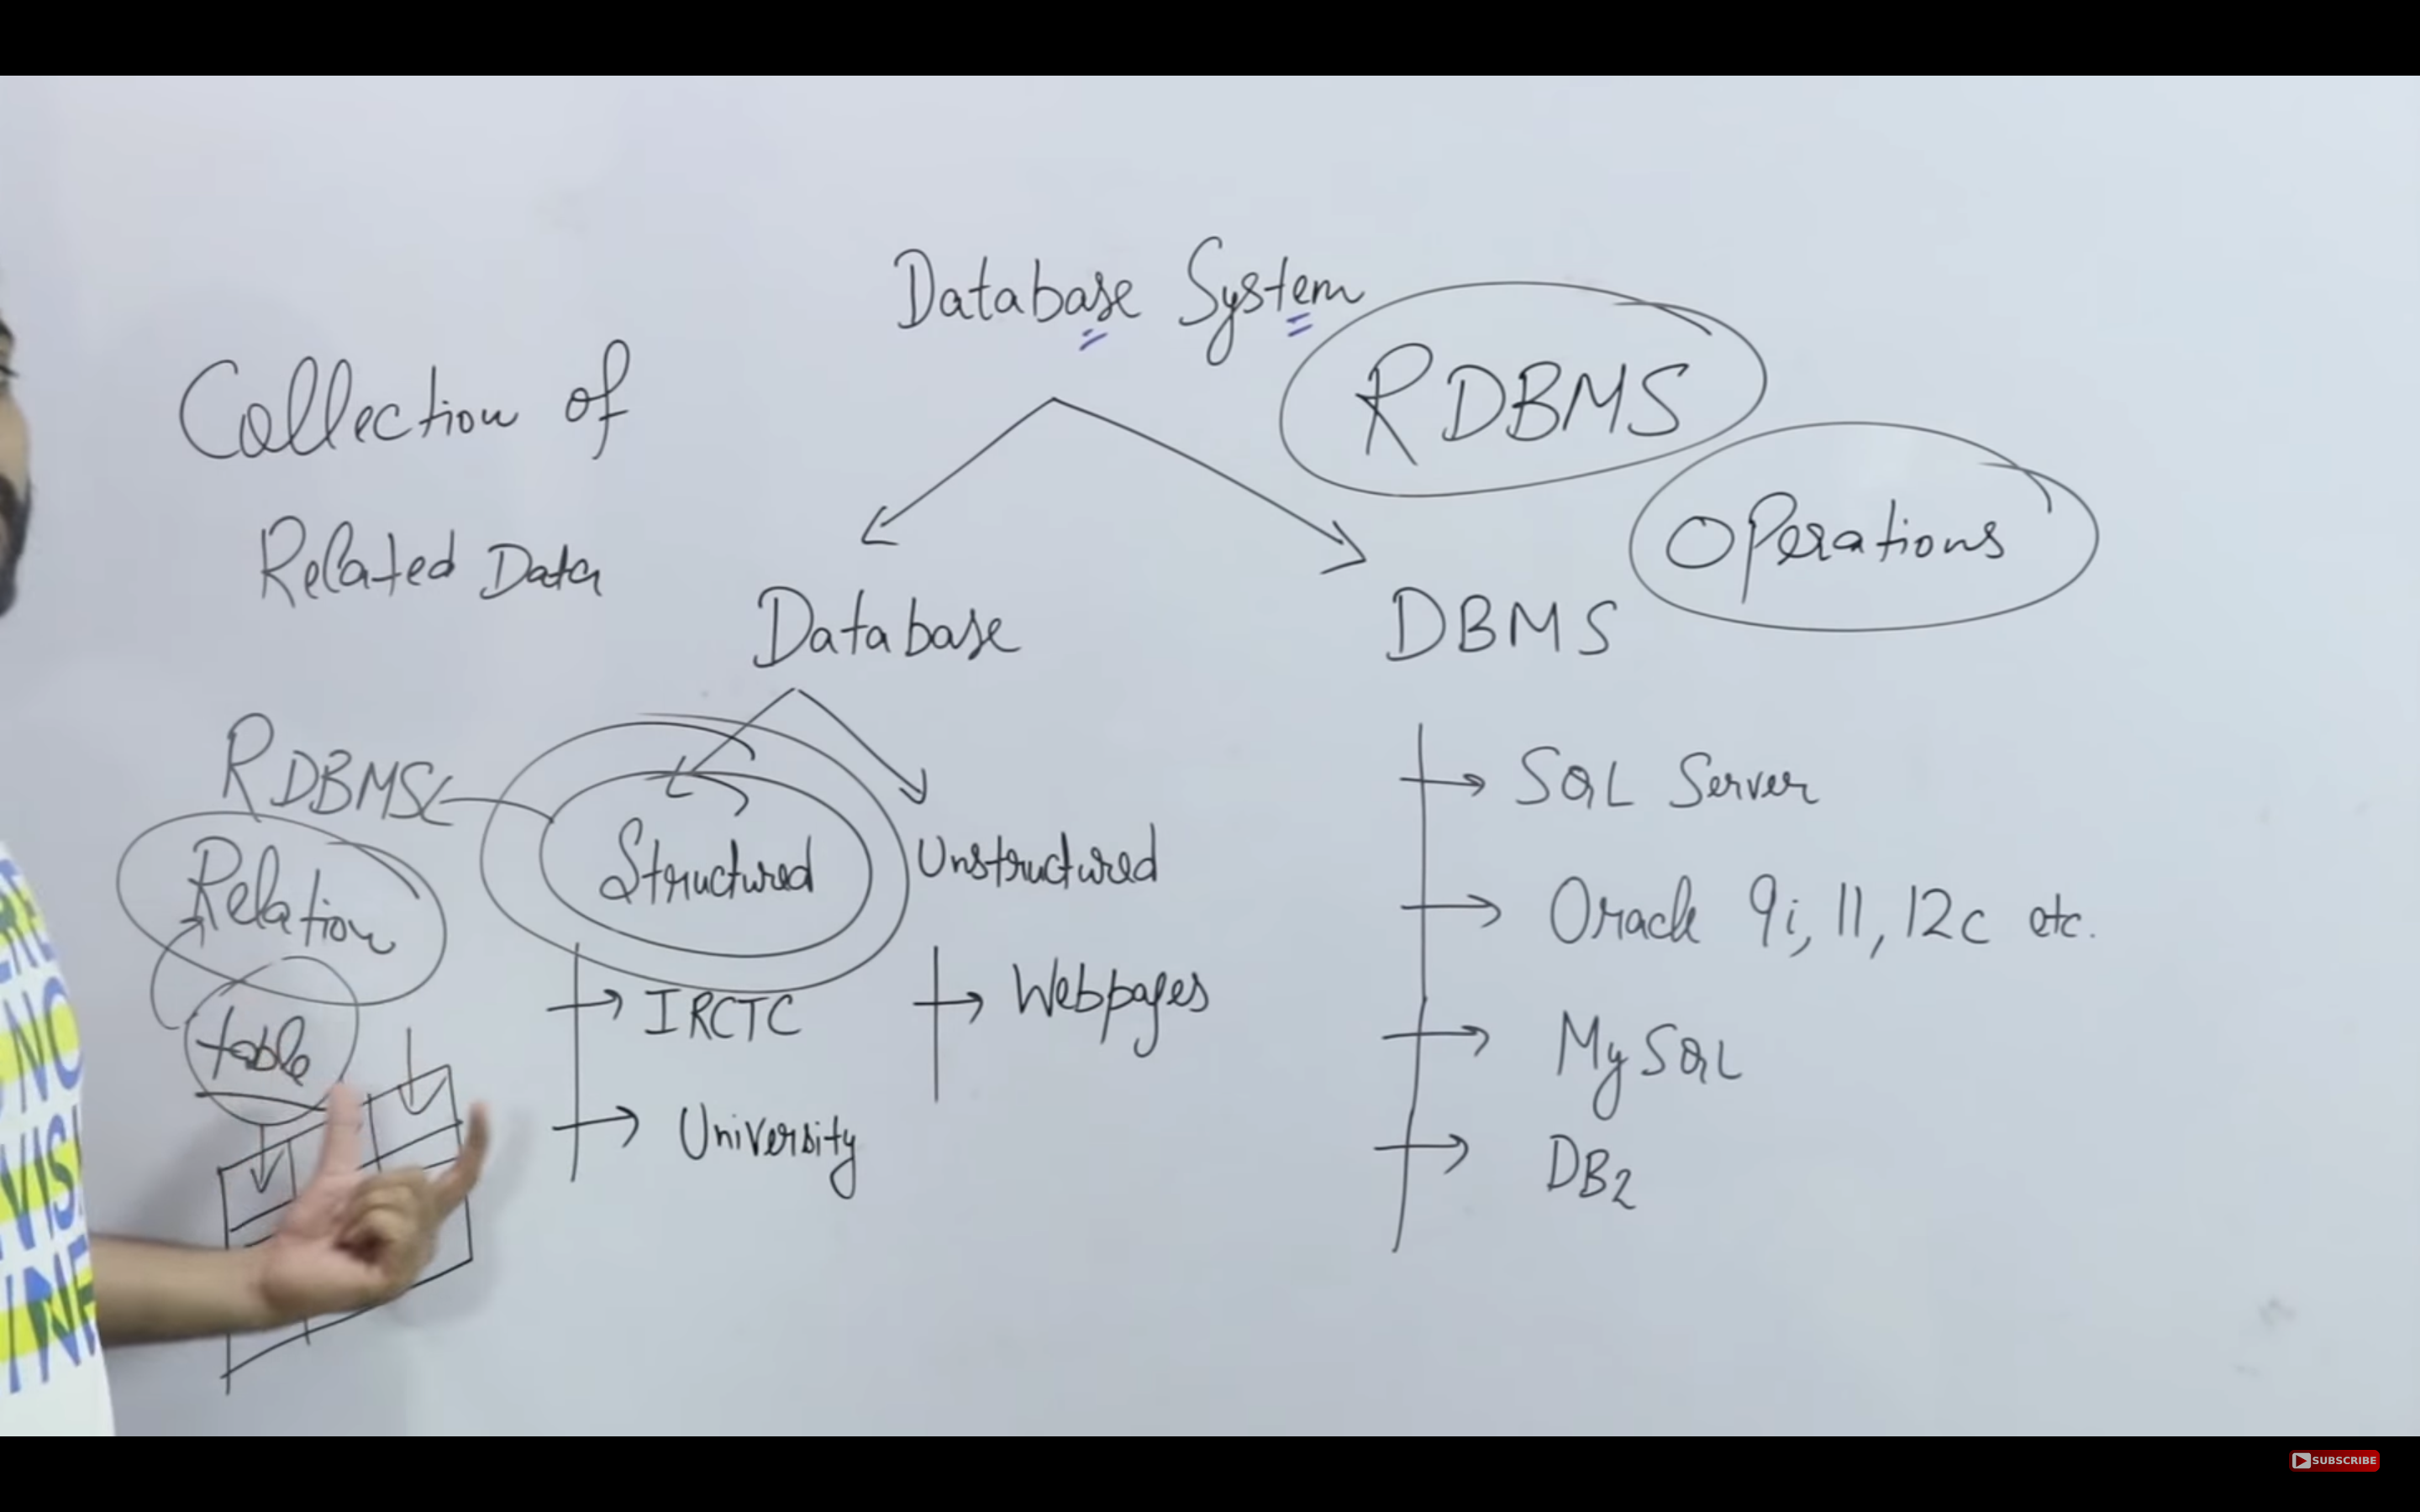 Database System
RDBMS
Collection of
Related Data
Operations
Database
DBMS
RDBMS
Relation
table
Structured
Unstructured
IRCTC
University
Webpages
SQL Server
Oracle 9i, 11, 12c etc.
MySQL
DB2
SUBSCRIBE